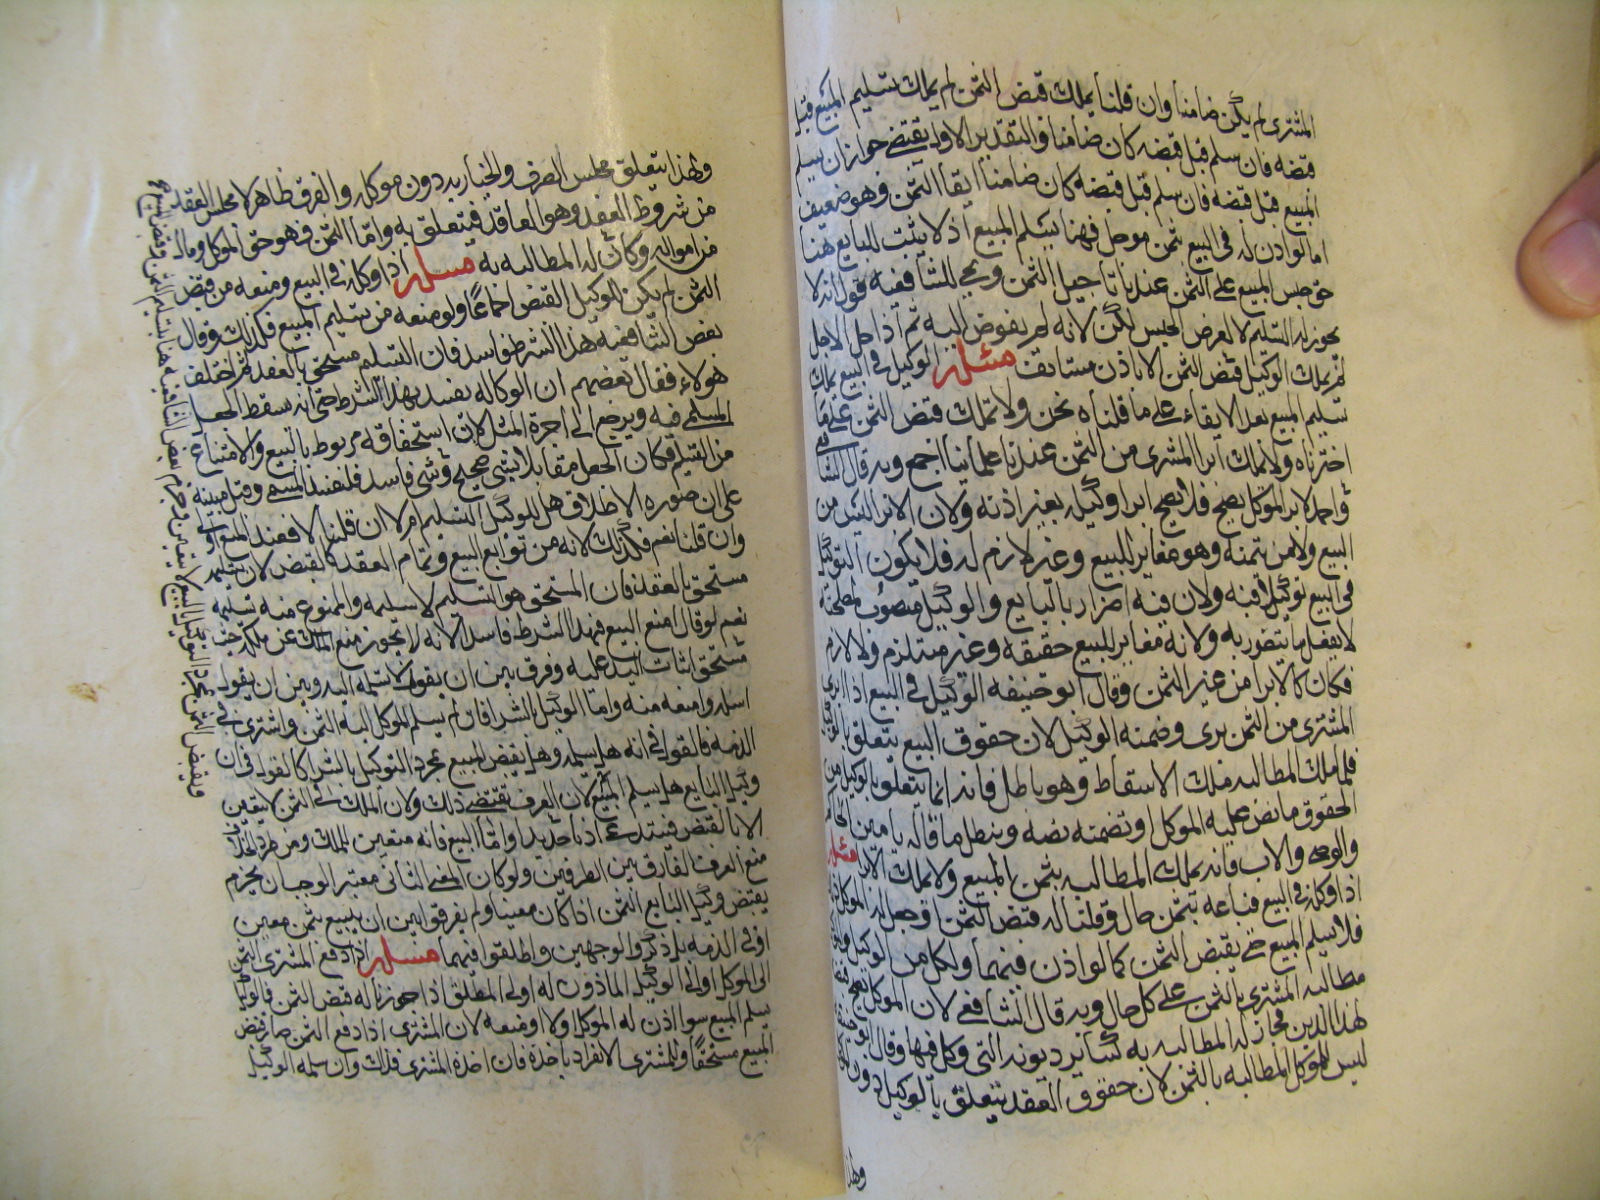 المشترى لم يكن ضامنا وان قلنا يملك قبض الثمن لم يملك تسليم المبيع قبل
قبضه فان سلم قبل قبضه كان ضامنا والتقدير الاول يقتضى جواز ان يسلم
المبيع قبل قبضه فان سلم قبل قبضه كان ضامنا ابقا الثمن وهو ضعيف
اما لو اذن له فى البيع بثمن موجل فهنا يسلم المبيع اذ لا يثبت للبايع هنا
حق حبس المبيع على الثمن عندنا تاجيل الثمن ويجى للشافعيه قول انه لا
يجوز له التسليم لا لغرض الحبس لكن لانه لم يفوض اليه ثم اذا حل الاجل
لم يملك الوكيل قبض الثمن الا باذن مستانف مسئله الوكيل فى البيع يملك
تسليم المبيع بعد الايفاء على ما قلناه نحن ولا يملك قبض الثمن على ما
اخترناه ولا يملك ابرا المشترى من الثمن عند علمائنا اجمع وبه قال الشافعى
واحمد لان ابرا الموكل يصح فلا يصح ابرا وكيله بغير اذنه ولان الابرا ليس من
البيع ولا من تتمته وهو مغاير للبيع وغير لازم له فلا يكون التوكيل
فى البيع توكيلا فيه ولان فيه اضرار بالبايع والوكيل منصوب لمصلحته
لا يفعل ما يتضرر به ولانه مغاير للبيع حقيقه وغير مستلزم ولا لازم
فكان كالابرا من غير الثمن وقال ابو حنيفه الوكيل فى البيع اذا ابرى
المشترى من الثمن برى وضمنه الوكيل لان حقوق البيع يتعلق بالوكيل
فلما ملك المطالبه ملك الاسقاط وهو باطل فانه انما يتعلق بالوكيل من
الحقوق ما نص عليه الموكل او تضمنه نصه وينطل ما قاله بامين الحاكم
والوصى والاب فانه يملك المطالبه بثمن المبيع ولا يملك الابرا مسئله
اذا وكله فى البيع فباعه بثمن حال وقلنا له قبض الثمن او جعل له الموكل
فلا يسلم المبيع حتى يقبض الثمن كما لو اذن فيهما ولكل من الوكيل
مطالبه المشترى بالثمن على كل حال وبه قال الشافعى لان الموكل يصح قبضه
لهذا الدين فجاز له المطالبه به كسائر ديونه التى وكل فيها وقال ابو حنيفه
ليس للموكل المطالبه بالثمن لان حقوق العقد يتعلق بالوكيل دون
ولهذا
ولهذا يتعلق مجلس الصرف والخيار به دون موكله والفرق ظاهر لان مجلس العقد
من شروط العقد وهو العاقد فيتعلق به واما الثمن فهو حق الموكل ومال
من امواله وكان له المطالبه به مسئله اذا وكله فى البيع ومنعه من قبض
الثمن لم يكن للوكيل القبض اجماعا ولو منعه من تسليم المبيع فكذلك وقال
بعض الشافعيه هذا الشرط فاسد فان التسلم مستحق بالعقد ثم اختلف
هولاء فقال بعضهم ان الوكاله يفسد بهذا الشرط حتى انه سقط الجعل
المسلم فيه ويرجع الى اجرة المثل لان استحقاقه مربوط بالبيع والامتناع
من التسليم فكان الجعل مقابلا بشى صحيح وشى فاسد فلفسد المسمى وقيل مبينه
على ان صوره الاطلاق هل للوكيل التسليم ام لا ان قلنا لا فعند المنع اولى
وان قلنا نعم فكذلك لانه من توابع البيع وتمام العقد كالقبض لان تسليم
مستحق بالعقد فان المستحق هو التسليم لا تسليمه والممنوع منه تسليمه
نعم لو قال امنع البيع فهذا الشرط فاسد لانه لا يجوز منع الملك عن ملكه حيث
مستحق اثبات اليد عليه وفرق بين ان يقول لا تسلمه اليه وبين ان يقول
اسله وامنعه منه واما الوكيل بالشرا فان لم يسلم الموكل اليه الثمن واشترى فى
الذمه فالقول فى انه هل يسلم وهل يقبض المبيع بمجرد التوكيل بالشرا كالقول فى ان
وكيل البايع هل يسلم المبيع لان العرف يقتضى ذلك ولان الملك فى الثمن لا يتعين
الا بالقبض فيستدعى اذنا جديدا واما المبيع فانه متعين للملك ومن طرد الخلاف
منع العرف الفارق بين الطرفين ولو كان المعنى الثانى معتبر الوجب ان يجزم
يقبض وكيل البايع الثمن اذا كان معينا ولم يفرقوا بين ان يبيع بثمن معين
او فى الذمه بل ذكروا الوجهين واطلقوا فيهما مسئله اذا دفع المشترى الثمن
الى الموكل او الى الوكيل الماذون له او الى المطلق اذا جوزنا له قبض الثمن فالوكيل
يسلم المبيع سوا اذن له الموكل او لا او منعه لان المشترى اذا دفع الثمن صار قبض
المبيع مستحقا وللمشترى الانفراد باخذه فان اخذه المشترى فذلك وان سلمه الوكيل